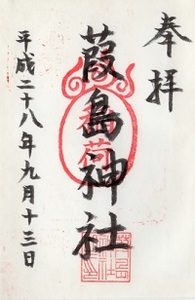 奉拝
葭島神社
平成二十八年九月十三日